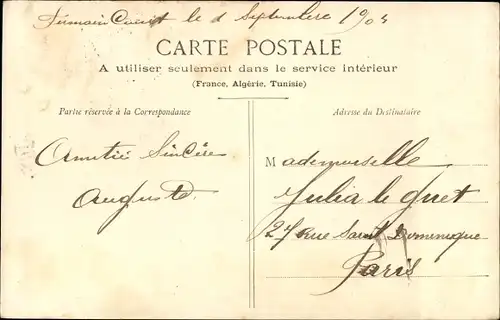 le 1 Septembre 190
CARTE POSTALE
A utiliser seulement dans le service intérieur
(France, Algérie, Tunisie)
Partie réservée à la Correspondance
Adresse du Destinataire
Amitié Sincère
Auguste
Mademoiselle
Julia le Guet
27 Rue Saint Dominique
Paris